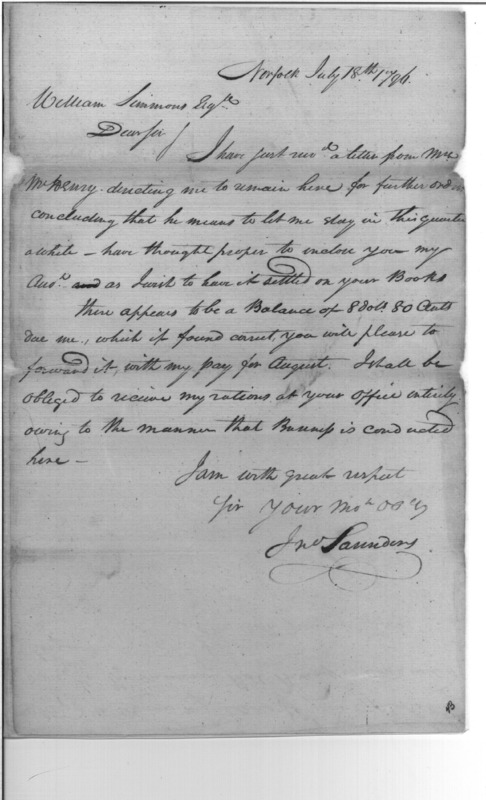 Norfolk July 18.th 1796.
William Simmons Esqr.
Dear Sir
I have just recd a letter from Mr
McHenry directing me to remain here for further orders
concluding that he means to let me stay in this quarter
a while – have thought proper to inclose you my
as I wish to have it settled on your Books
there appears to be a Balance of 8 dols. 80 Cents
due me, which if found correct, you will please to
forward it, with my pay for August. I shall be
obliged to receive my rations at your office entirely
owing to the manner that Business is conducted
here –
I am with great respect
Sir Your Mot. Obt
Jno Saunders